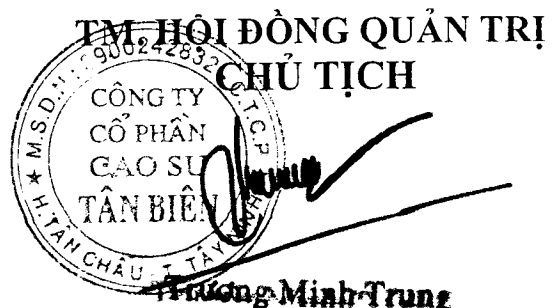 TM. HỘI ĐỒNG QUẢN TRỊ
CHỦ TỊCH
M.S.D.N: 3900242832 C.T.C.P
CÔNG TY
CỔ PHẦN
CAO SU
TÂN BIÊN
H. TÂN CHÂU - T. TÂY NINH
Trương Minh Trung